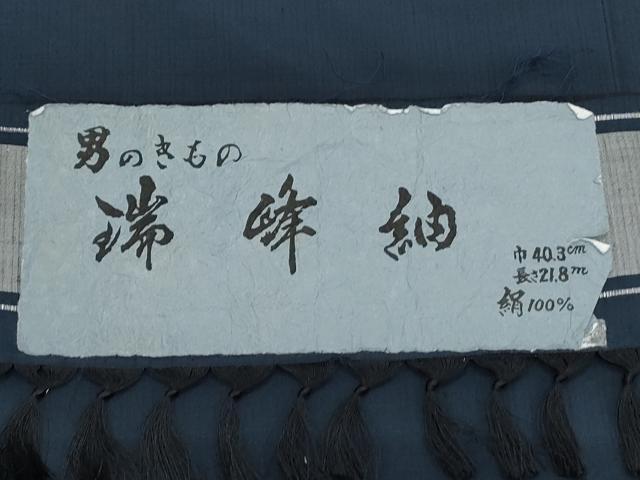 男のきもの
瑞峰紬
巾40.3cm
長さ21.8m
絹100%